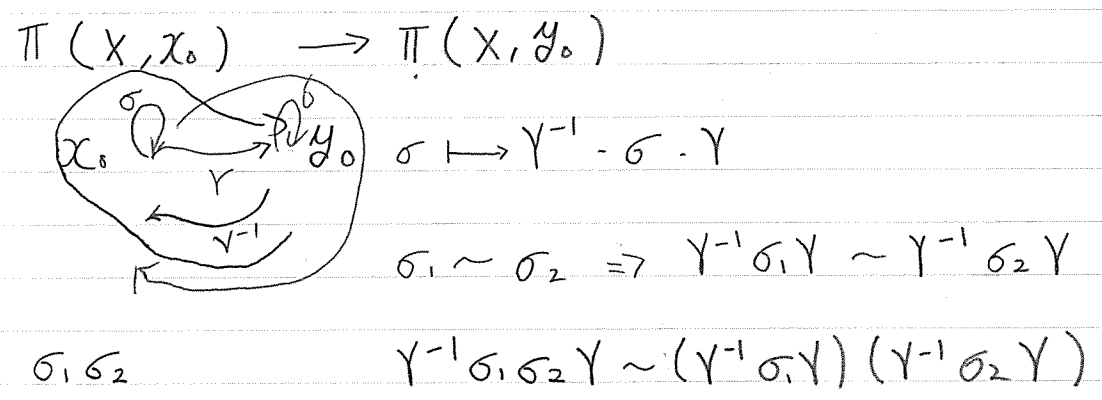 π(X, x₀) → π(X, y₀)
σ σ
x₀ y₀ σ ↦ γ⁻¹ · σ · γ
γ
γ⁻¹
σ₁ ~ σ₂ ⇒ γ⁻¹σ₁γ ~ γ⁻¹σ₂γ
σ₁σ₂ γ⁻¹σ₁σ₂γ ~ (γ⁻¹σ₁γ)(γ⁻¹σ₂γ)